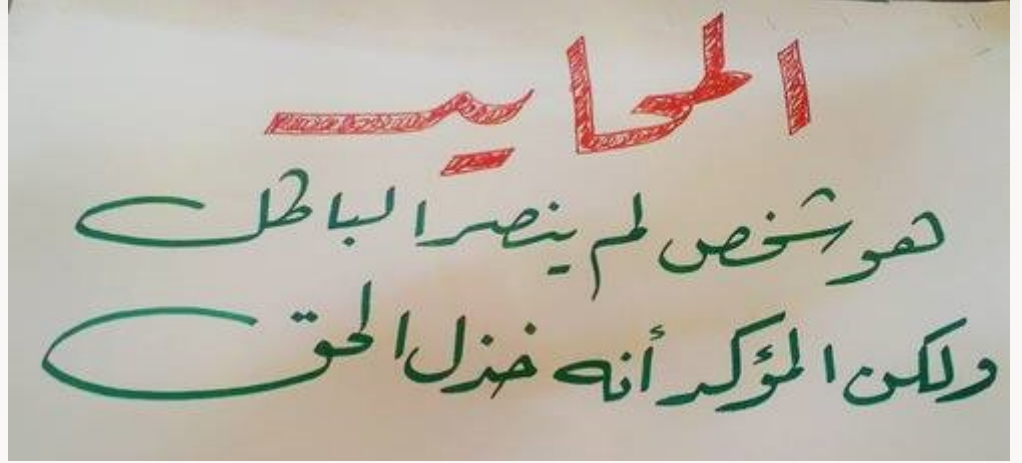 المحايد
هو شخص لم ينصر الباطل
ولكن المؤكد أنه خذل الحق